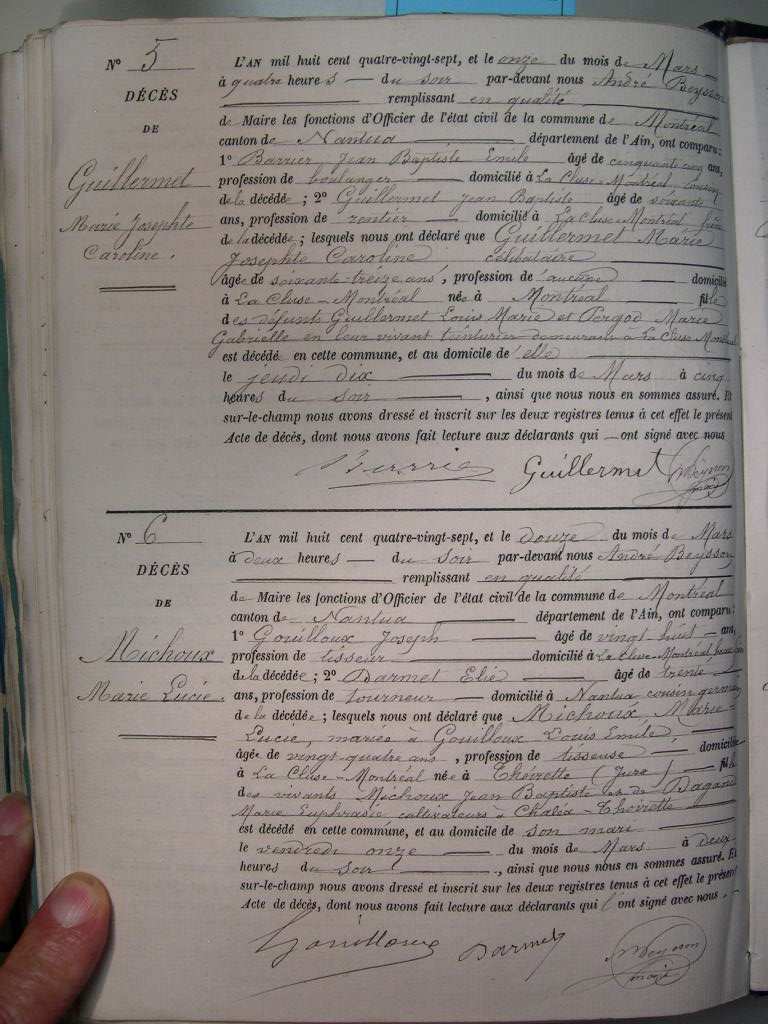 N° 5
DÉCÈS
DE
Guillermet
Marie Josephte
Caroline.
L'AN mil huit cent quatre-vingt-sept, et le onze du mois de Mars
à quatre heures du soir par-devant nous André Beysson
remplissant en qualité
de Maire les fonctions d'Officier de l'état civil de la commune de Montréal
canton de Nantua département de l'Ain, ont comparu:
1° Barrier, Jean Baptiste Emile âgé de cinquante cinq ans,
profession de boulanger domicilié à La Cluse-Montréal, cousin
de la décédée; 2° Guillermet Jean Baptiste âgé de soixante
ans, profession de rentier domicilié à La Cluse-Montréal frère
de la décédée; lesquels nous ont déclaré que Guillermet Marie
Josephte Caroline célibataire
âgée de soixante-treize ans, profession de aucune domicilié
à La Cluse-Montréal née à Montréal fille
des défunts Guillermet Louis Marie et Pergod Marie
Gabrielle en leur vivant teinturier demeurant à La Cluse Montréal
est décédé en cette commune, et au domicile d'elle
le jeudi dix du mois de Mars à cinq
heures du soir, ainsi que nous nous en sommes assuré. Et
sur-le-champ nous avons dressé et inscrit sur les deux registres tenus à cet effet le présent
Acte de décès, dont nous avons fait lecture aux déclarants qui ont signé avec nous
Guillermet Beysson
N° 6
DÉCÈS
DE
Michoux
Marie Lucie.
L'AN mil huit cent quatre-vingt-sept, et le douze du mois de Mars
à deux heures du soir par-devant nous André Beysson
remplissant en qualité
de Maire les fonctions d'Officier de l'état civil de la commune de Montréal
canton de Nantua département de l'Ain, ont comparu:
1° Gouilloux Joseph âgé de vingt huit ans,
profession de tisseur domicilié à La Cluse-Montréal, beau
de la décédée; 2° Darmet Elie âgé de trente
ans, profession de tourneur domicilié à Nantua cousin germain
de la décédée; lesquels nous ont déclaré que Michoux, Marie
Lucie, mariée à Gouilloux Louis Emile,
âgée de vingt-quatre ans, profession de tisseuse domiciliée
à La Cluse-Montréal née à Thoirette (Jura) fille
des vivants Michoux Jean Baptiste et de Dagand
Marie Euphrasie cultivateurs à Chaléa-Thoirette
est décédé en cette commune, et au domicile de son mari
le vendredi onze du mois de Mars à deux
heures du soir, ainsi que nous nous en sommes assuré. Et
sur-le-champ nous avons dressé et inscrit sur les deux registres tenus à cet effet le présent
Acte de décès, dont nous avons fait lecture aux déclarants qui ont signé avec nous.
Gouilloux Darmet Beysson